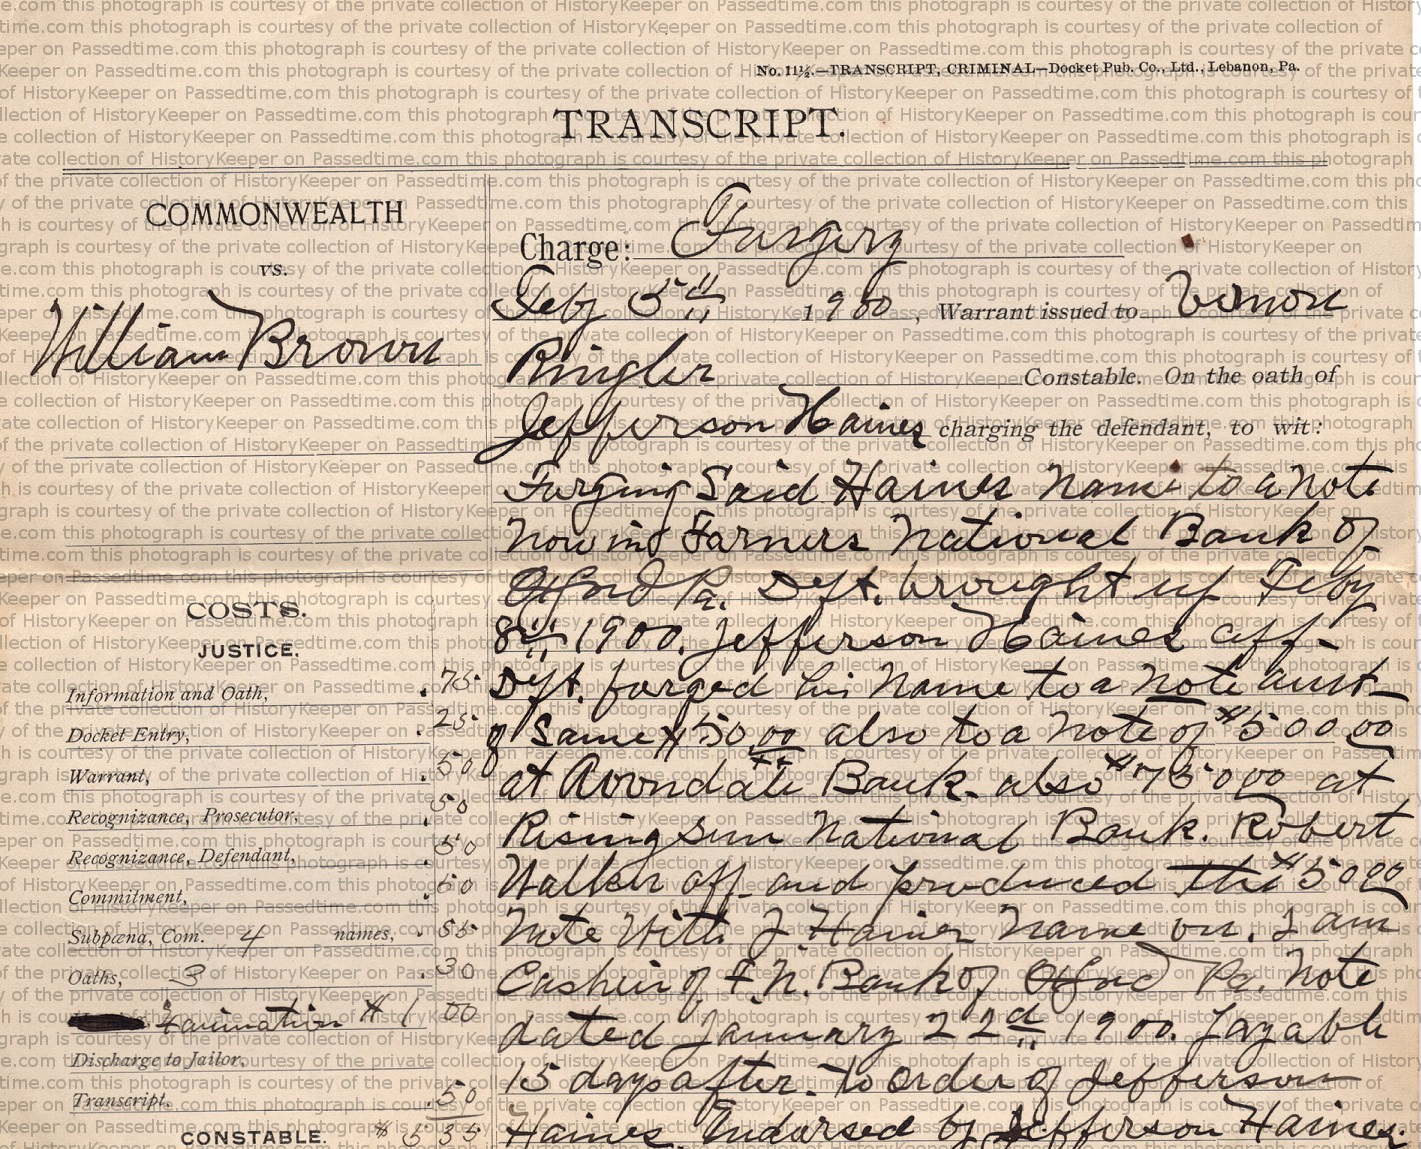 No. 11½.—TRANSCRIPT, CRIMINAL—Docket Pub. Co., Ltd., Lebanon, Pa.
TRANSCRIPT.
COMMONWEALTH
vs.
William Brown
Charge: Forgery
Feby 5th 1900, Warrant issued to Vernon
Ringler Constable. On the oath of
Jefferson Haines charging the defendant, to wit:
Forging Said Haines Name to a Note
Now in Farmers National Bank of
Oxford Pa. Deft. brought up Feby
8th 1900. Jefferson Haines aff-
Deft. forged his Name to a Note
of Same $50.00 also to a Note of $50000
at Avondale Bank. also $75000 at
Rising Sun National Bank. Robert
Walker aff. and produced the $5000
Note With J. Haines Name on. I am
Cashier of F. N. Bank of Oxford Pa. Note
dated January 22d 1900. payable
15 days after. to order of Jefferson
Haines. Endorsed by Jefferson Haines.
COSTS.
JUSTICE.
Information and Oath, . 75
Docket Entry, . 25
Warrant, . 50
Recognizance, Prosecutor, . 50
Recognizance, Defendant, . 50
Commitment, . 50
Subpœna, Com. 4 names, . 55
Oaths, 3 . 30
Examination $ 1 00
Discharge to Jailor,
Transcript, . 50
CONSTABLE. $ 5 35
this photograph is courtesy of the private collection of HistoryKeeper on Passedtime.com